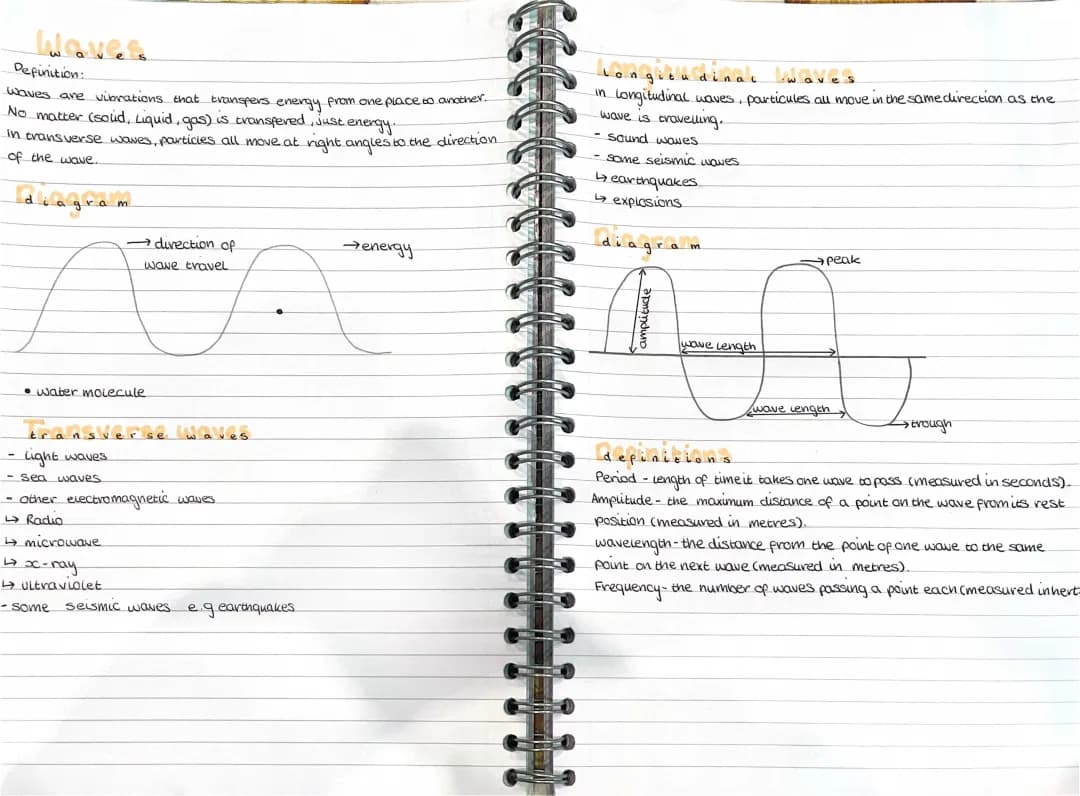 Waves
Definition:
Waves are vibrations that transfers energy from one place to another.
No matter (solid, liquid, gas) is transfered, just energy.
In transverse waves, particles all move at right angles to the direction
of the wave.
Diagram
→ direction of
wave travel
→ energy
• water molecule
Transverse waves
- light waves
- sea waves
- other electromagnetic waves
↳ Radio
↳ microwave
↳ x-ray
↳ ultraviolet
- some seismic waves e.g earthquakes
Longitudinal waves
in longitudinal waves, particules all move in the same direction as the
wave is travelling.
- sound waves
- some seismic waves
↳ earthquakes
↳ explosions
Diagram
→ peak
amplitude
wave length
wave length
→ trough
definitions
Period - length of time it takes one wave to pass (measured in seconds).
Amplitude - the maximum distance of a point on the wave from its rest
position (measured in metres).
wavelength - the distance from the point of one wave to the same
point on the next wave (measured in metres).
Frequency - the number of waves passing a point each (measured in hert